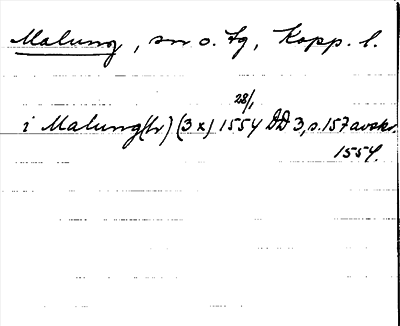 Malung, sn o. tg, Kopp. l.
28/1
i Malung(hr) (3 x) 1554 DD 3, s. 157 avskr.
1554.